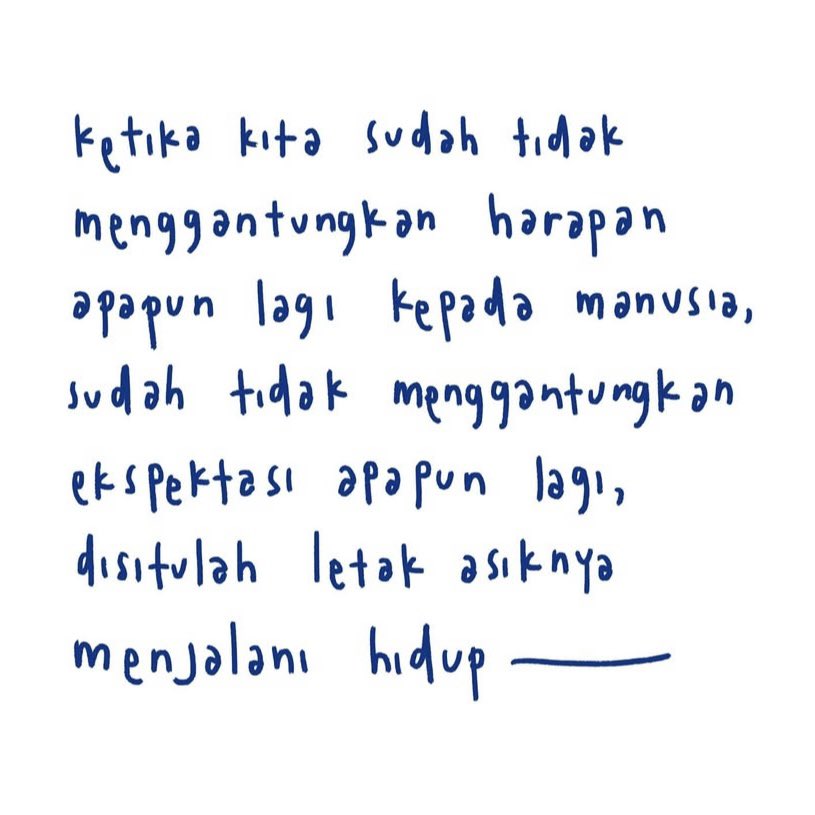 ketika kita sudah tidak
menggantungkan harapan
apapun lagi kepada manusia,
sudah tidak menggantungkan
ekspektasi apapun lagi,
disitulah letak asiknya
menjalani hidup ——